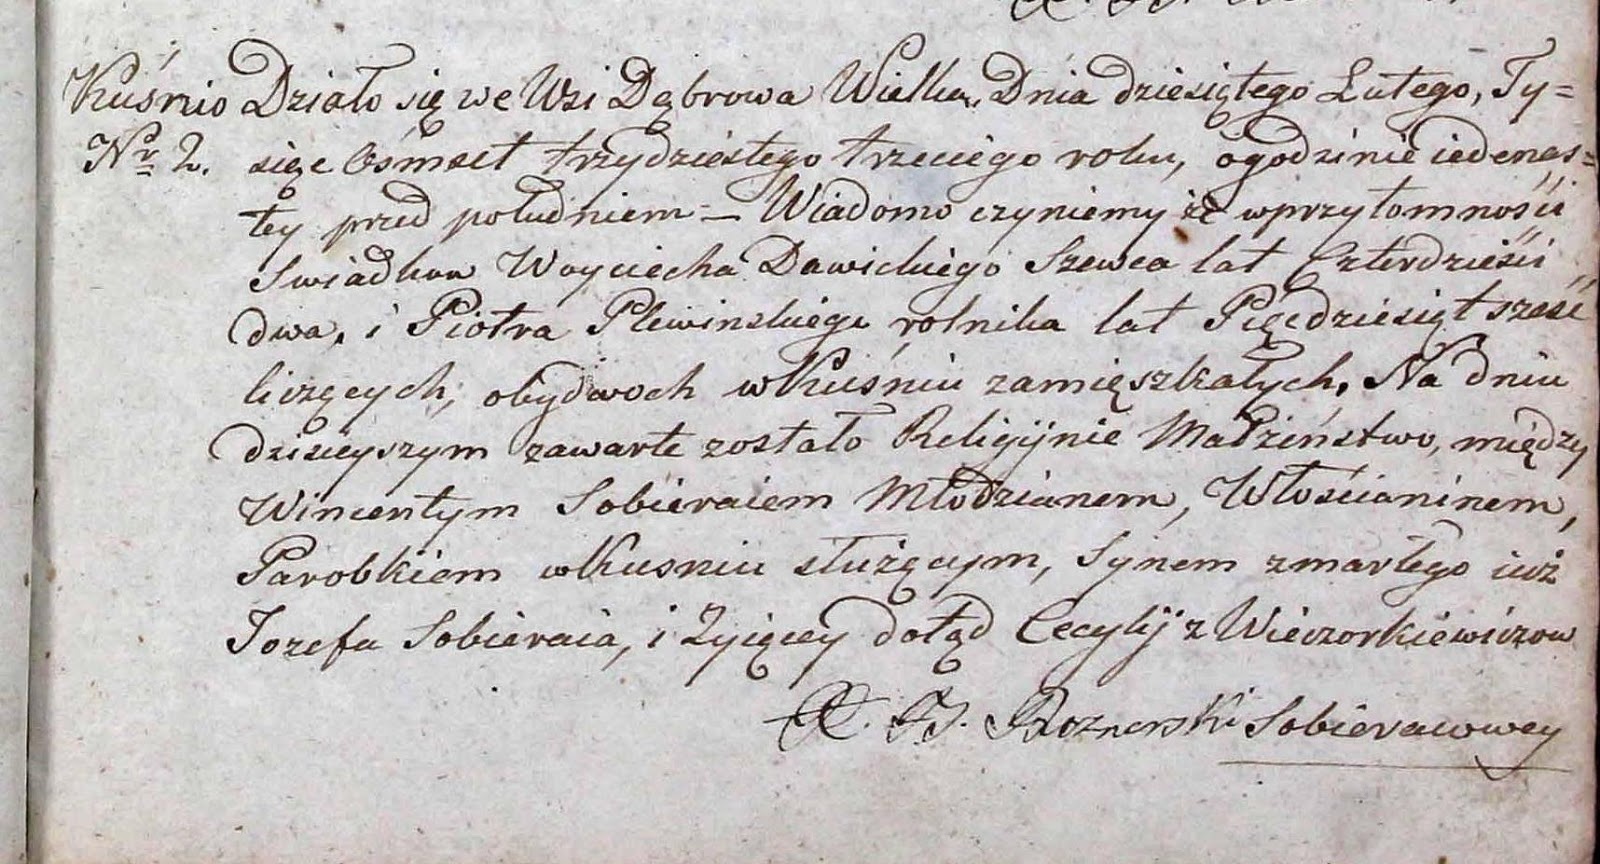 Kuśnio Działo się we Wsi Dąbrowa Wielka, Dnia dziesiątego Lutego, Ty=
Nr 2. siąc Ośmset trzydziestego trzeciego roku, ogodzinie iedenas=
tey przed południem — Wiadomo czyniemy że wprzytomności
Swiadkow Woyciecha Dawickiego Szewca lat Czterdzieści
dwa, i Piotra Plewinskiego rolnika lat Pięćdziesiąt sześć
liczących, obydwoch wKuśniu zamięszkałych, Na dniu
dzisieyszym zawarte zostało Religijnie Małżeństwo, między
Wincentym Sobieraiem Młodzianem, Włościaninem,
Parobkiem wKusniu służącym, Synem zmarłego iuż
Jozefa Sobieraia, i Żyiącey dotąd Cecylij z Wieczorkiewiczow
X. J. Roznerski Sobieraiowey